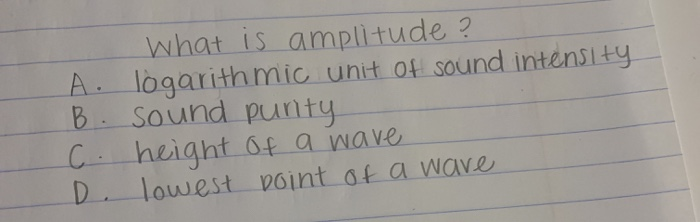 What is amplitude?
A. logarithmic unit of sound intensity
B. sound purity
C. height of a wave
D. lowest point of a wave